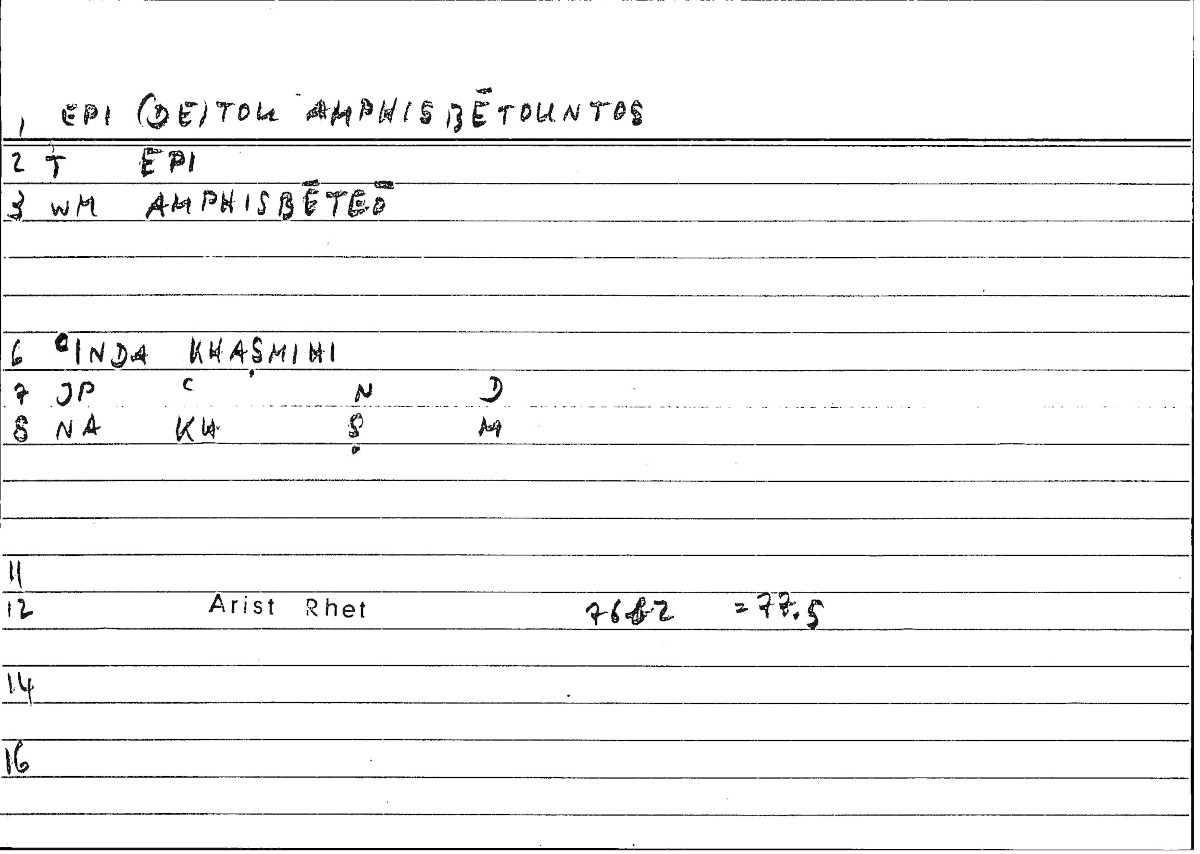 1 EPI (DE) TOU AMPHISBĒTOUNTOS
2 T EPI
3 WM AMPHISBĒTEŌ
6 ᶜINDA KHAṢMIHI
7 JP C N D
8 NA KH Ṣ M
11
12 Arist Rhet =77.5
14
16